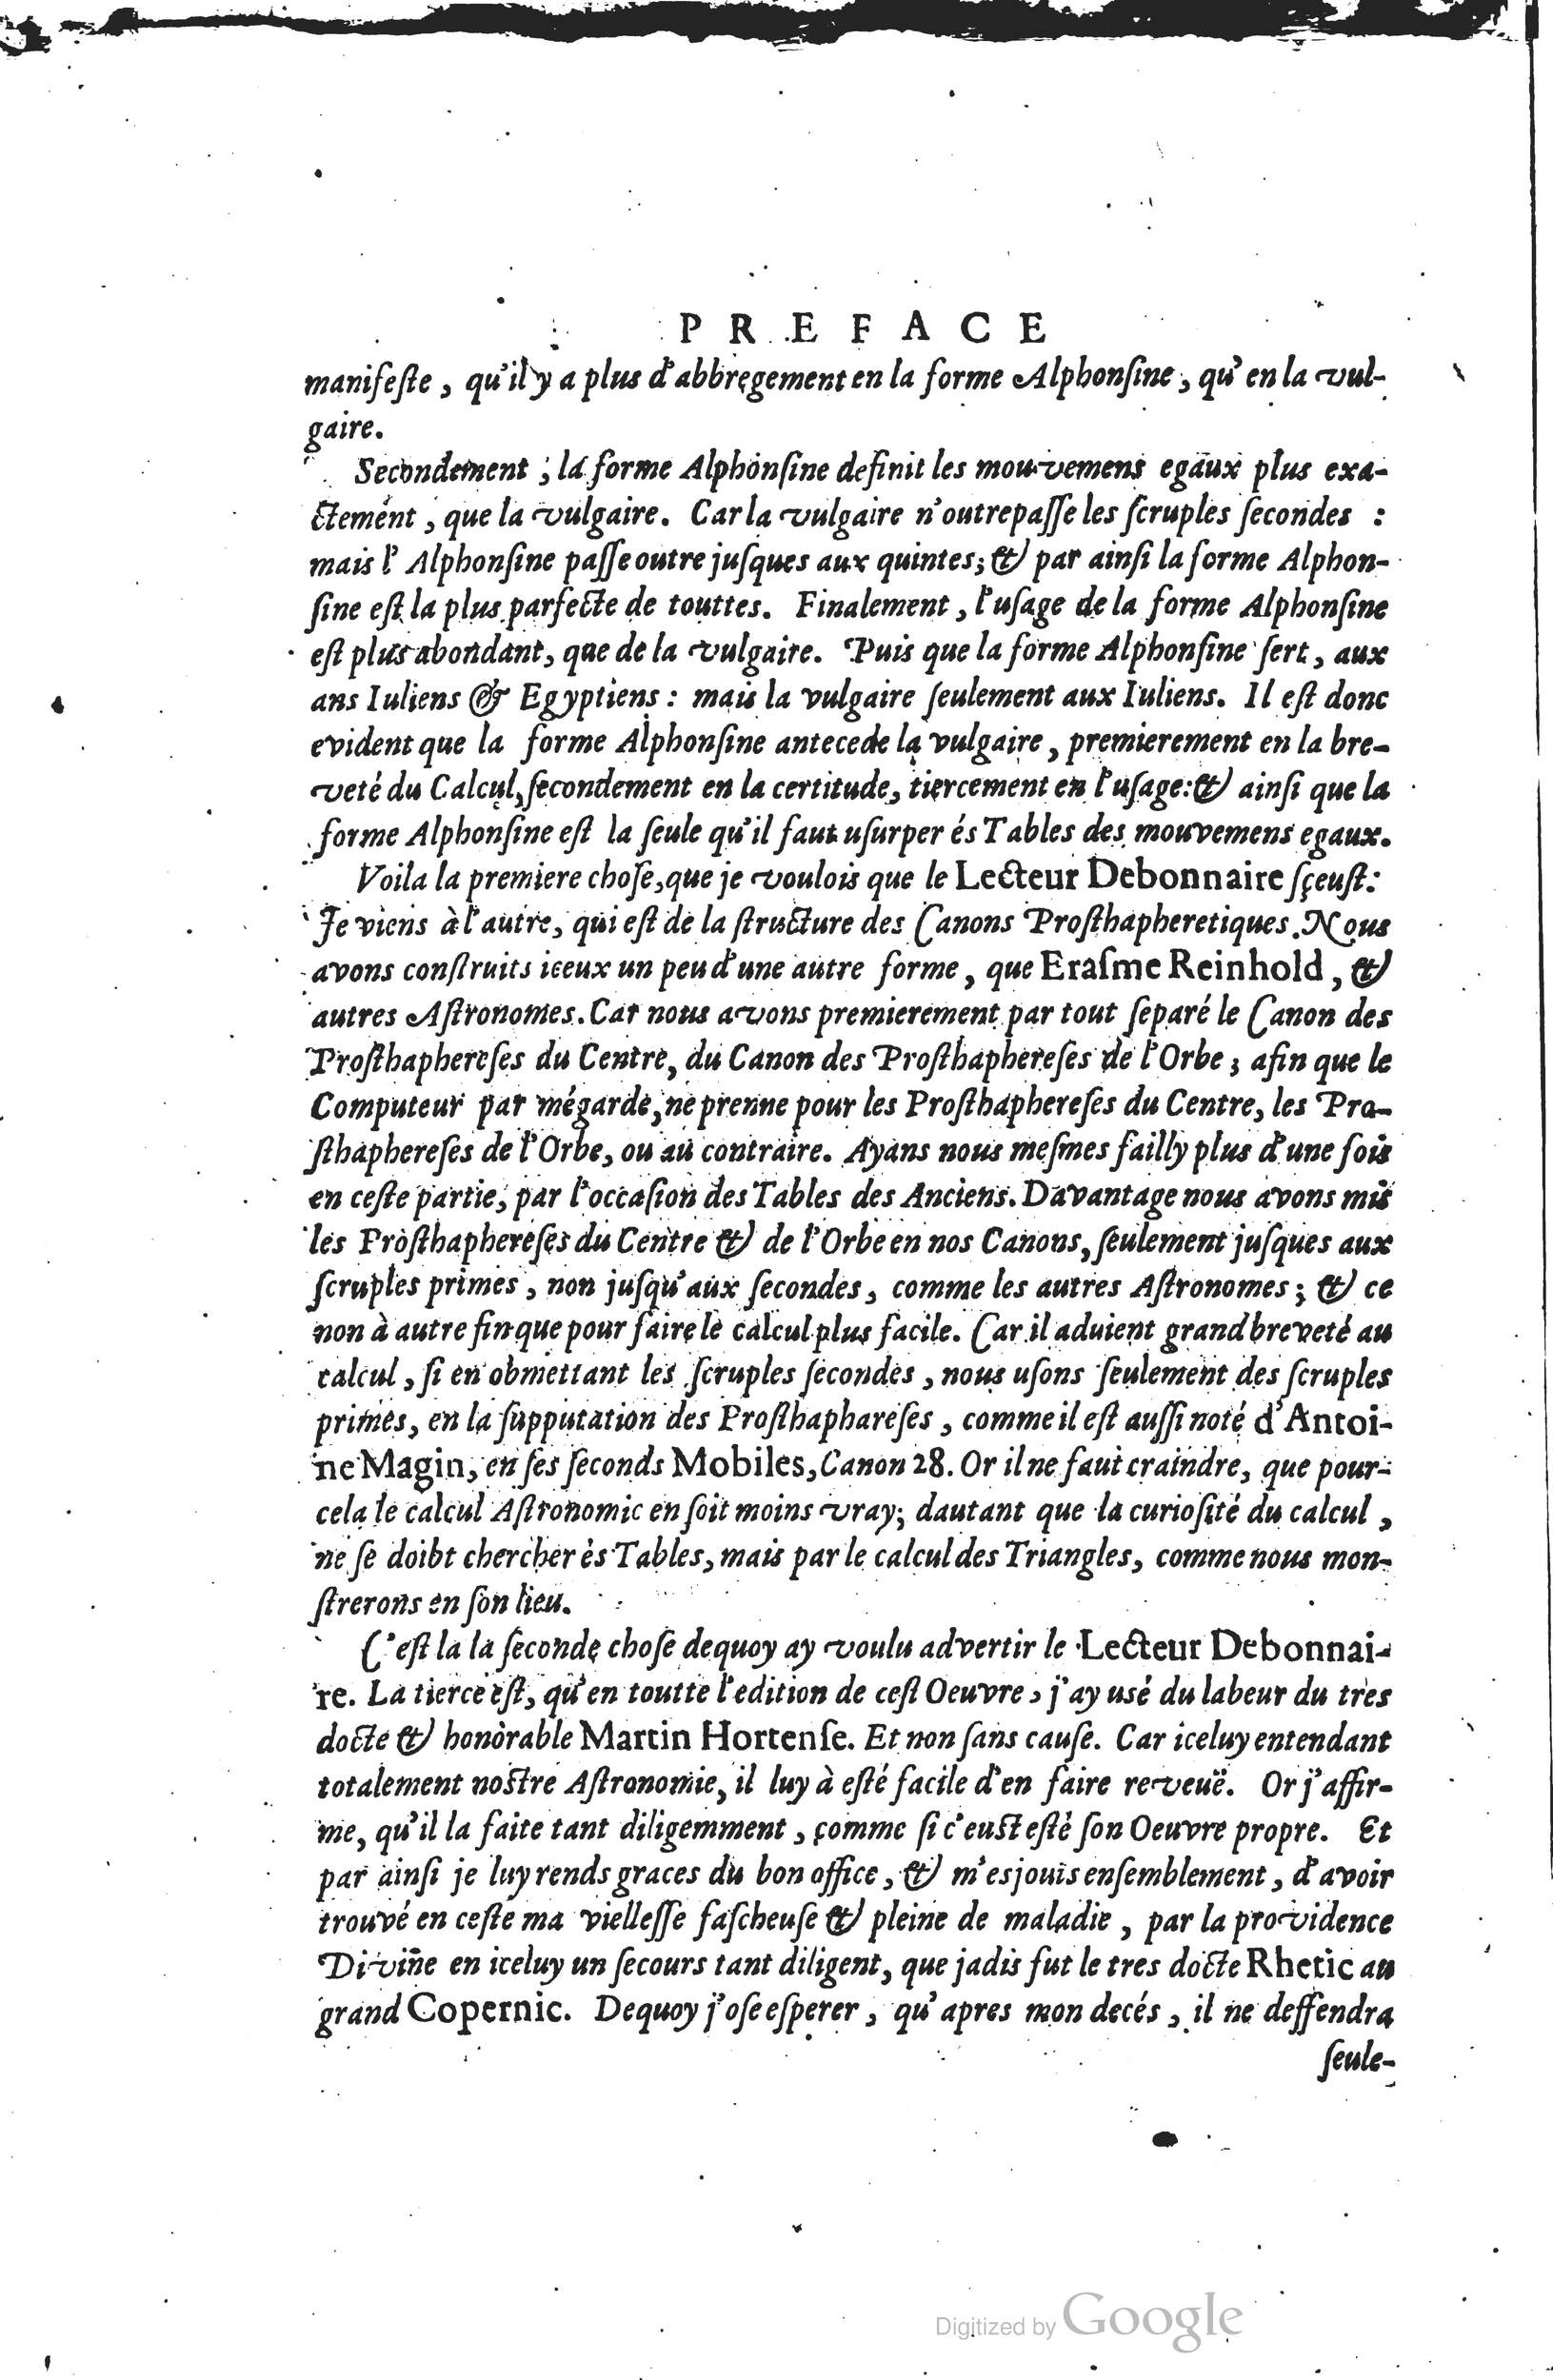 PREFACE
manifeſte, qu'il y a plus d'abbregement en la forme Alphonſine, qu'en la vul-
gaire.
Secondement, la forme Alphonſine definit les mouvemens egaux plus exa-
ctement, que la vulgaire. Car la vulgaire n'outrepaſſe les ſcruples ſecondes :
mais l'Alphonſine paſſe outre juſques aux quintes; & par ainſi la forme Alphon-
ſine eſt la plus parfecte de touttes. Finalement, l'uſage de la forme Alphonſine
eſt plus abondant, que de la vulgaire. Puis que la forme Alphonſine ſert, aux
ans Iuliens & Egyptiens : mais la vulgaire ſeulement aux Iuliens. Il eſt donc
evident que la forme Alphonſine antecede la vulgaire, premierement en la bre-
veté du Calcul, ſecondement en la certitude, tiercement en l'uſage: & ainſi que la
forme Alphonſine eſt la ſeule qu'il faut uſurper és Tables des mouvemens egaux.
Voila la premiere choſe, que je voulois que le Lecteur Debonnaire ſçeuſt:
Je viens à l'autre, qui eſt de la ſtructure des Canons Proſthapheretiques. Nous
avons conſtruits iceux un peu d'une autre forme, que Eraſme Reinhold, &
autres Aſtronomes. Car nous avons premierement par tout ſeparé le Canon des
Proſthaphereſes du Centre, du Canon des Proſthaphereſes de l'Orbe; afin que le
Computeur par mégarde, ne prenne pour les Proſthaphereſes du Centre, les Pro-
ſthaphereſes de l'Orbe, ou au contraire. Ayans nous meſmes failly plus d'une fois
en ceſte partie, par l'occaſion des Tables des Anciens. Davantage nous avons mis
les Proſthaphereſes du Centre & de l'Orbe en nos Canons, ſeulement juſques aux
ſcruples primes, non juſqu'aux ſecondes, comme les autres Aſtronomes; & ce
non à autre fin que pour faire le calcul plus facile. Car il aduient grand breveté au
calcul, ſi en obmettant les ſcruples ſecondes, nous uſons ſeulement des ſcruples
primes, en la ſupputation des Proſthaphareſes, comme il eſt auſſi noté d'Antoi-
ne Magin, en ſes ſeconds Mobiles, Canon 28. Or il ne faut craindre, que pour-
cela le calcul Aſtronomic en ſoit moins vray; dautant que la curioſité du calcul,
ne ſe doibt chercher ès Tables, mais par le calcul des Triangles, comme nous mon-
ſtrerons en ſon lieu.
C'eſt la la ſeconde choſe dequoy ay voulu advertir le Lecteur Debonnai-
re. La tierce eſt, qu'en toutte l'edition de ceſt Oeuvre, j'ay usé du labeur du tres
docte & honorable Martin Hortenſe. Et non ſans cauſe. Car iceluy entendant
totalement noſtre Aſtronomie, il luy à eſté facile d'en faire reveuë. Or j'affir-
me, qu'il la faite tant diligemment, comme ſi c'euſt eſté ſon Oeuvre propre. Et
par ainſi je luy rends graces du bon office, & m'esjouis enſemblement, d'avoir
trouvé en ceſte ma vielleſſe faſcheuſe & pleine de maladie, par la providence
Divine en iceluy un ſecours tant diligent, que jadis fut le tres docte Rhetic au
grand Copernic. Dequoy j'oſe eſperer, qu'apres mon decés, il ne deffendra
ſeule-
Digitized by Google